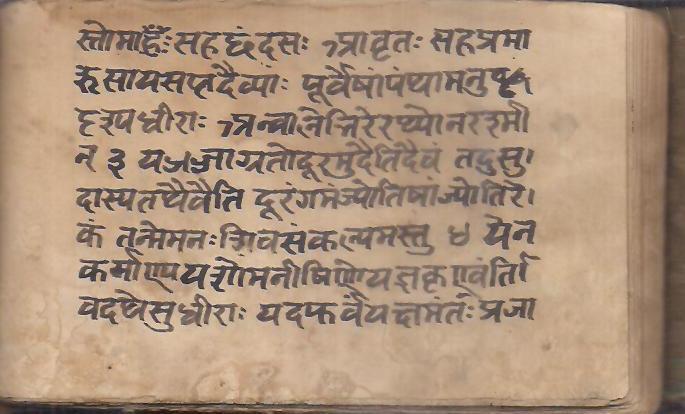 स्तोमाꣳः सहछंदसः ऽआवृतः सहप्रमा
ऋसायसप्तदैव्याः पूर्वेषांपंथामनु
दृश्यधीराः ऽअन्वालेभिरेरथ्योनरश्मी
न ३ यज्जाग्रतोदूरमुदैतिदैवं तदुसु।
दास्यतथैवैति दूरंगमंज्योतिषांज्योतिरे।
कं तन्मेमनः शिवसंकल्पमस्तु ४ येन
कर्माण्यपयशोमनीषिणोयज्ञकृण्वंति।
वदथेसुधीराः यदपूर्वंयक्षमंतः प्रजा